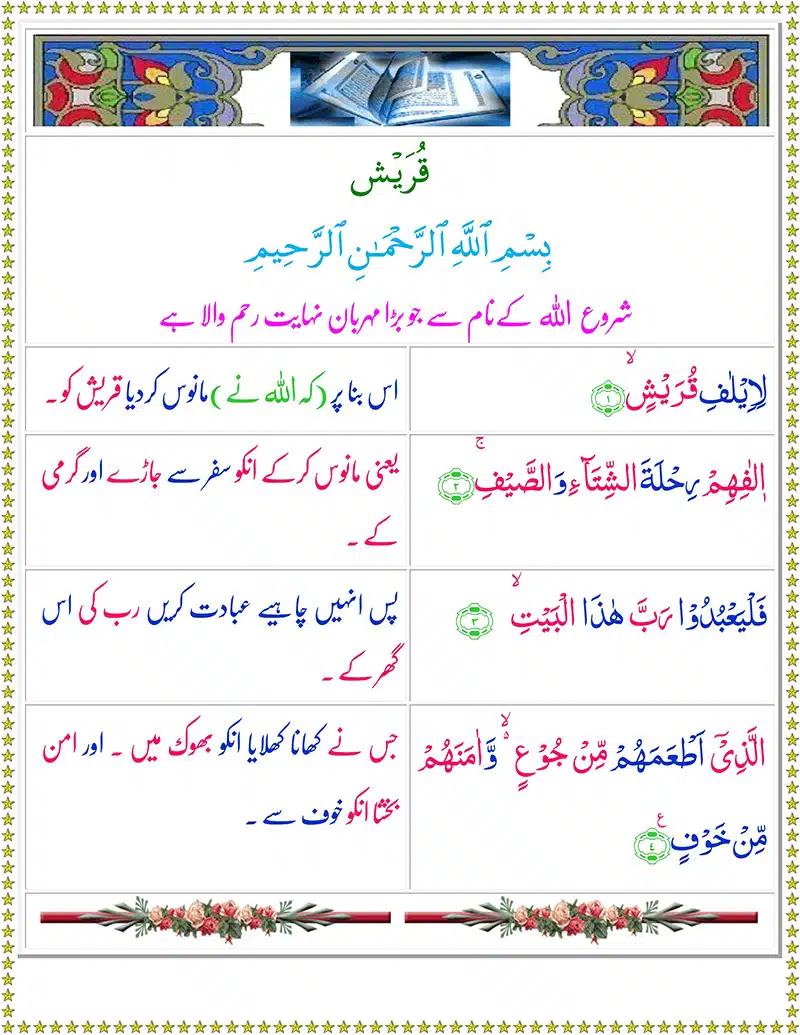 قُرَيْش
بِسْمِ ٱللَّهِ ٱلرَّحْمَـٰنِ ٱلرَّحِيمِ
شروع اللہ کے نام سے جو بڑا مہربان نہایت رحم والا ہے
لِاِيْلٰفِ قُرَيْشٍۙ ۝١
اس بنا پر (کہ اللہ نے) مانوس کردیا قریش کو۔
اٖلٰفِهِمْ رِحْلَةَ الشِّتَآءِ وَالصَّيْفِۚ ۝٢
یعنی مانوس کرکے انکو سفر سے جاڑے اور گرمی
کے ۔
فَلْيَعْبُدُوْا رَبَّ هٰذَا الْبَيْتِۙ ۝٣
پس انہیں چاہیے عبادت کریں رب کی اس
گھر کے ۔
الَّذِیْۤ اَطْعَمَهُمْ مِّنْ جُوْعٍۙ ۬ وَّاٰمَنَهُمْ
مِّنْ خَوْفٍ ۝٤ ع
جس نے کھانا کھلایا انکو بھوک میں ۔ اور امن
بخشا انکو خوف سے ۔